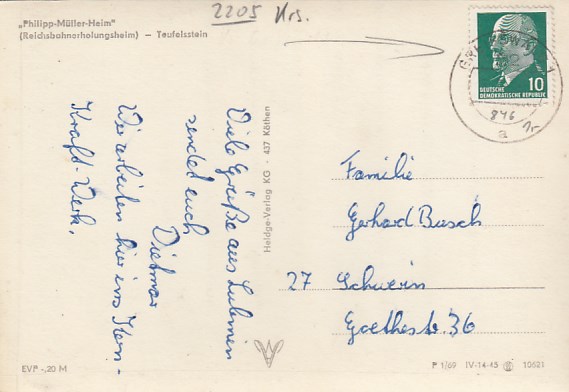 „Philipp-Müller-Heim"
(Reichsbahnerholungsheim) — Teufelsstein
2205 Krs.
DEUTSCHE
DEMOKRATISCHE REPUBLIK
10
846
a
Viele Grüße aus Lubmin
sendet euch
Dietmar
Wir arbeiten hier ins Kern-
Kraft-Werk.
Heldge-Verlag KG · 437 Köthen
Familie
Gerhard Busch
27 Schwerin
Goethestr. 36
EVP -,20 M
P 1/69 IV-14-45 10621